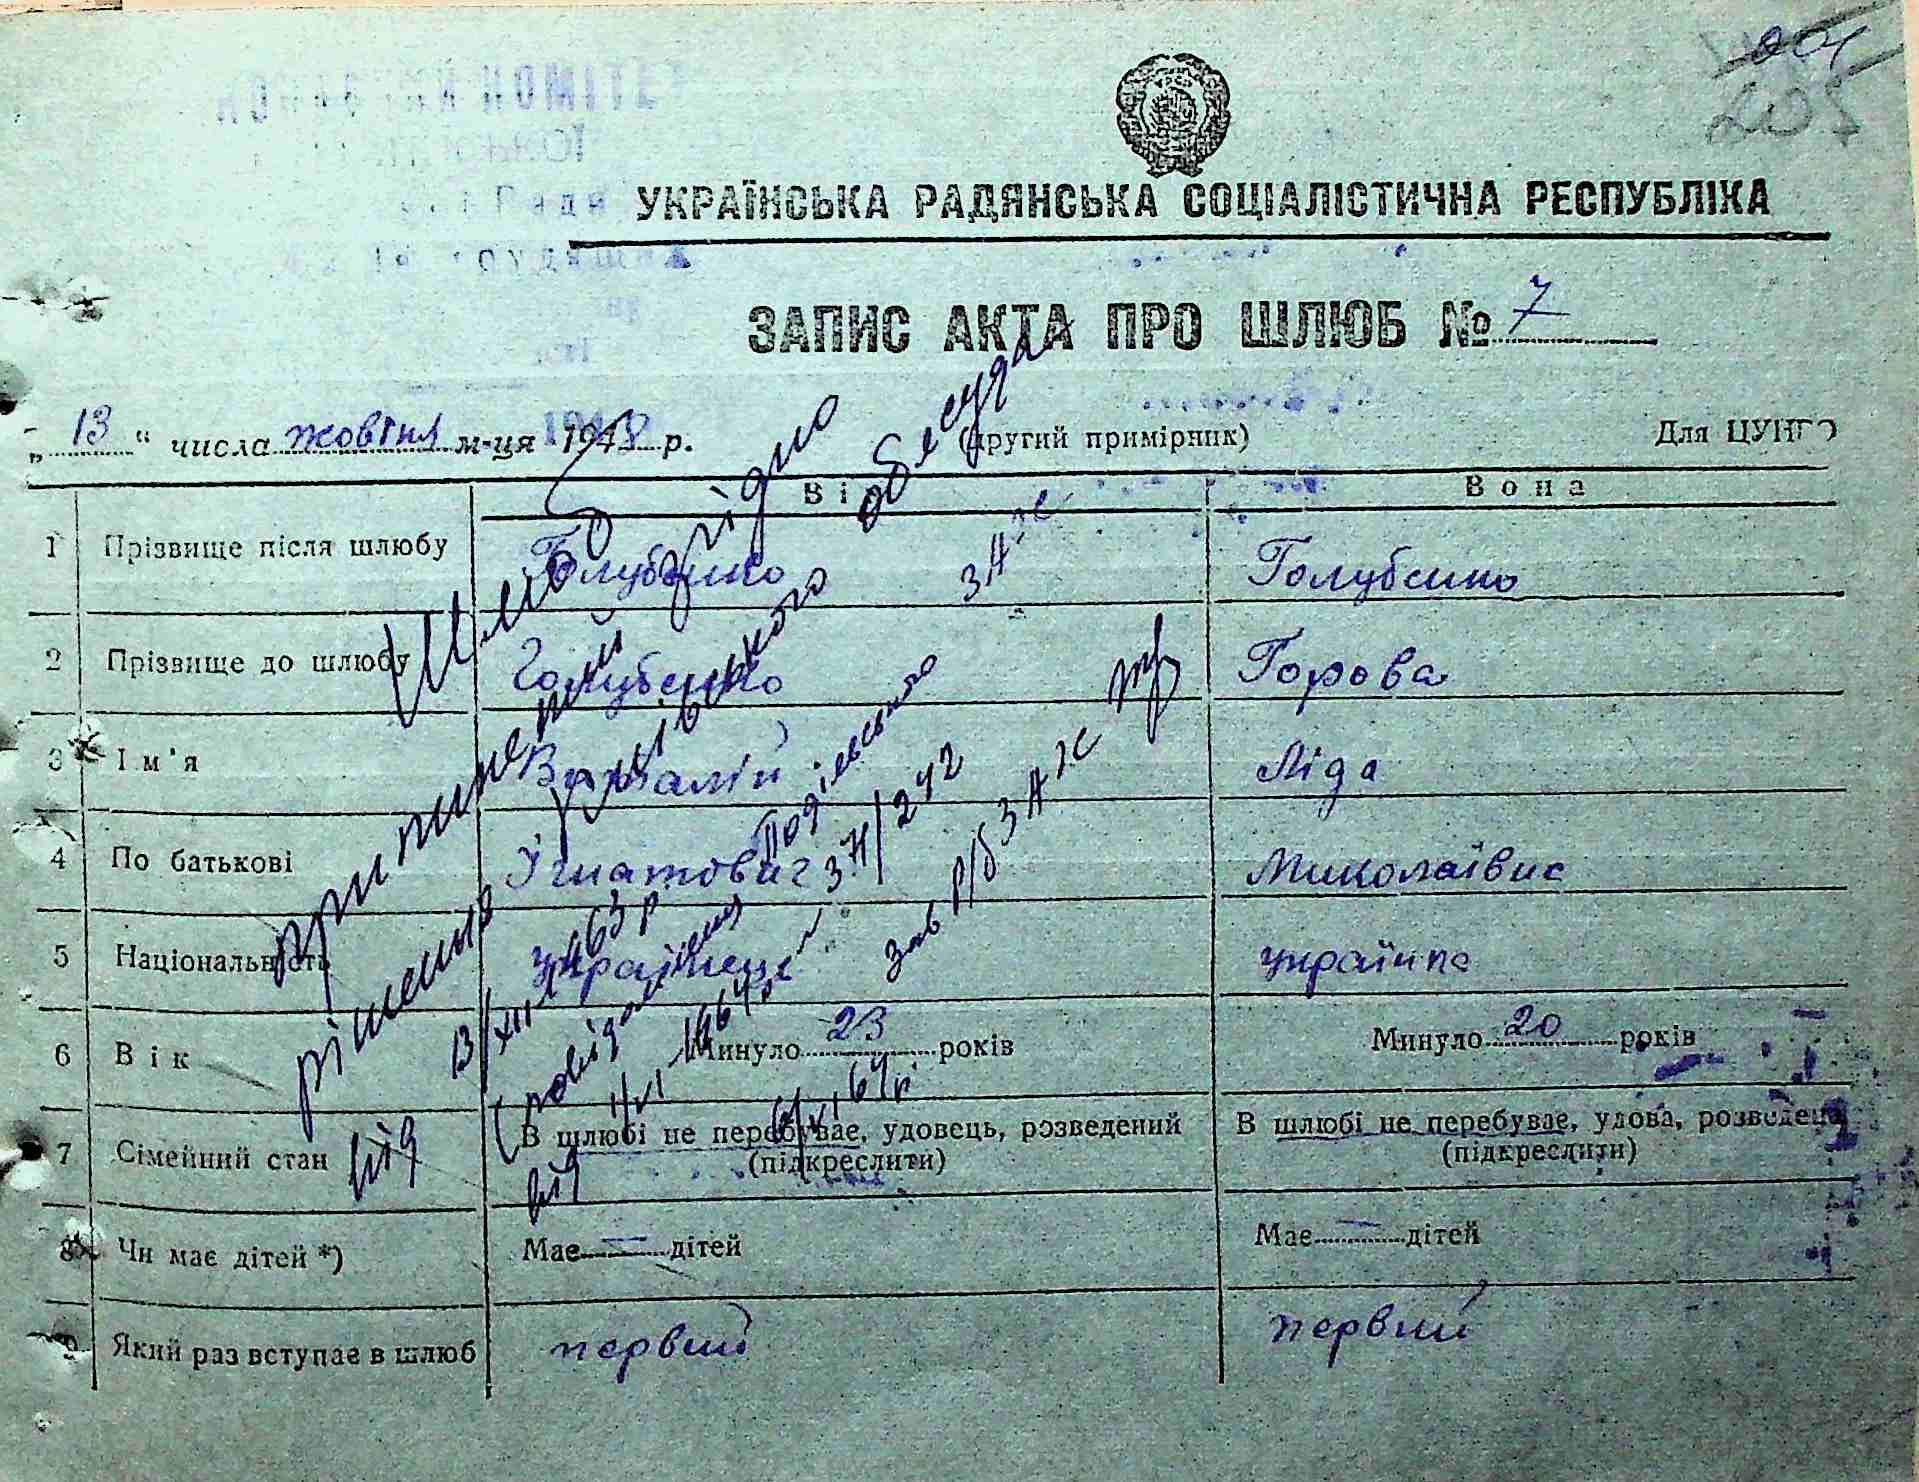 205
УКРАЇНСЬКА РАДЯНСЬКА СОЦІАЛІСТИЧНА РЕСПУБЛІКА
ЗАПИС АКТА ПРО ШЛЮБ № 7
„ 13 “ числа жовтня м-ця 1948 р.
(другий примірник)
Для ЦУНГО
Він
Вона
1 Прізвище після шлюбу Голубенко Голубенко
2 Прізвище до шлюбу Голубенко Горова
3 Ім'я Віталій Ліда
4 По батькові Гнатович Миколаївна
5 Національність українець українка
6 Вік Минуло 23 років Минуло 20 років
7 Сімейний стан В шлюбі не перебуває, удовець, розведений (підкреслити) В шлюбі не перебуває, удова, розведена (підкреслити)
8 Чи має дітей *) Має — дітей Має — дітей
9 Який раз вступає в шлюб первий первий
Шлюб згідно
припинений
рішення
облсуда
від 13/XII 1963 р.
(повідомлення
Подільського
ЗАГС
від 1/VI 1964 р.
371/242
зав р/б ЗАГС